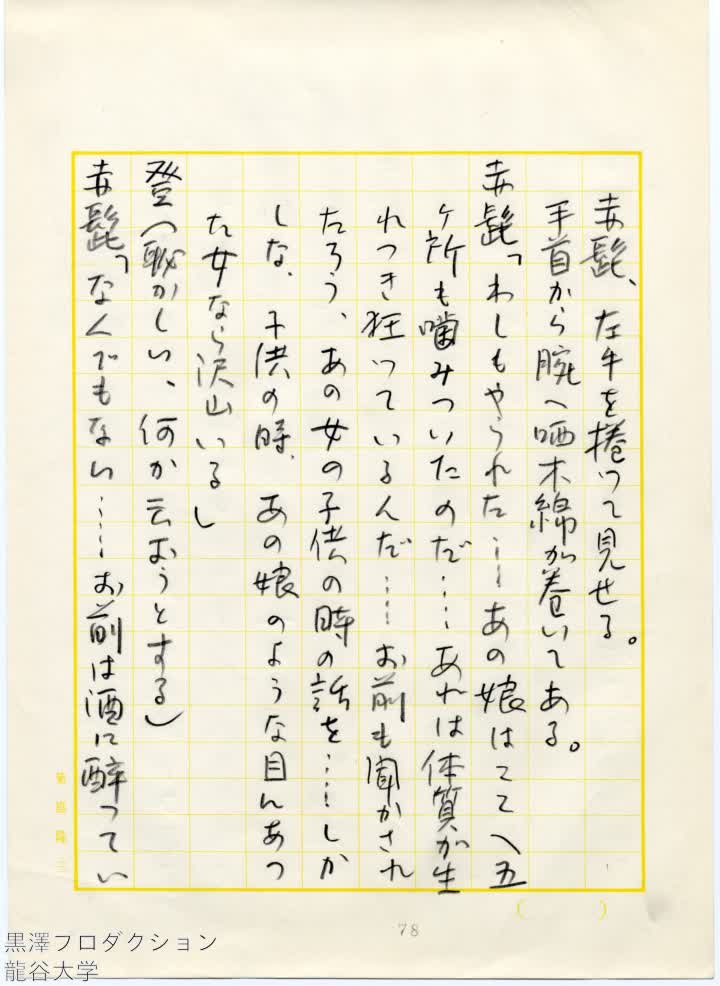 赤髭、左手を捲って見せる。
手首から腕へ晒木綿が巻いてある。
赤髭「わしもやられた……あの娘はここへ五
ヶ所も噛みついたのだ……あれは体質が生
れつき狂っているんだ……お前も聞かされ
たろう、あの女の子供の時の話を……しか
しな、子供の時、あの娘のような目にあっ
た女なら沢山いる」
登（恥かしい、何か云おうとする）
赤髭「なんでもない……お前は酒に酔ってい
菊島隆三
78
黒澤プロダクション
龍谷大学